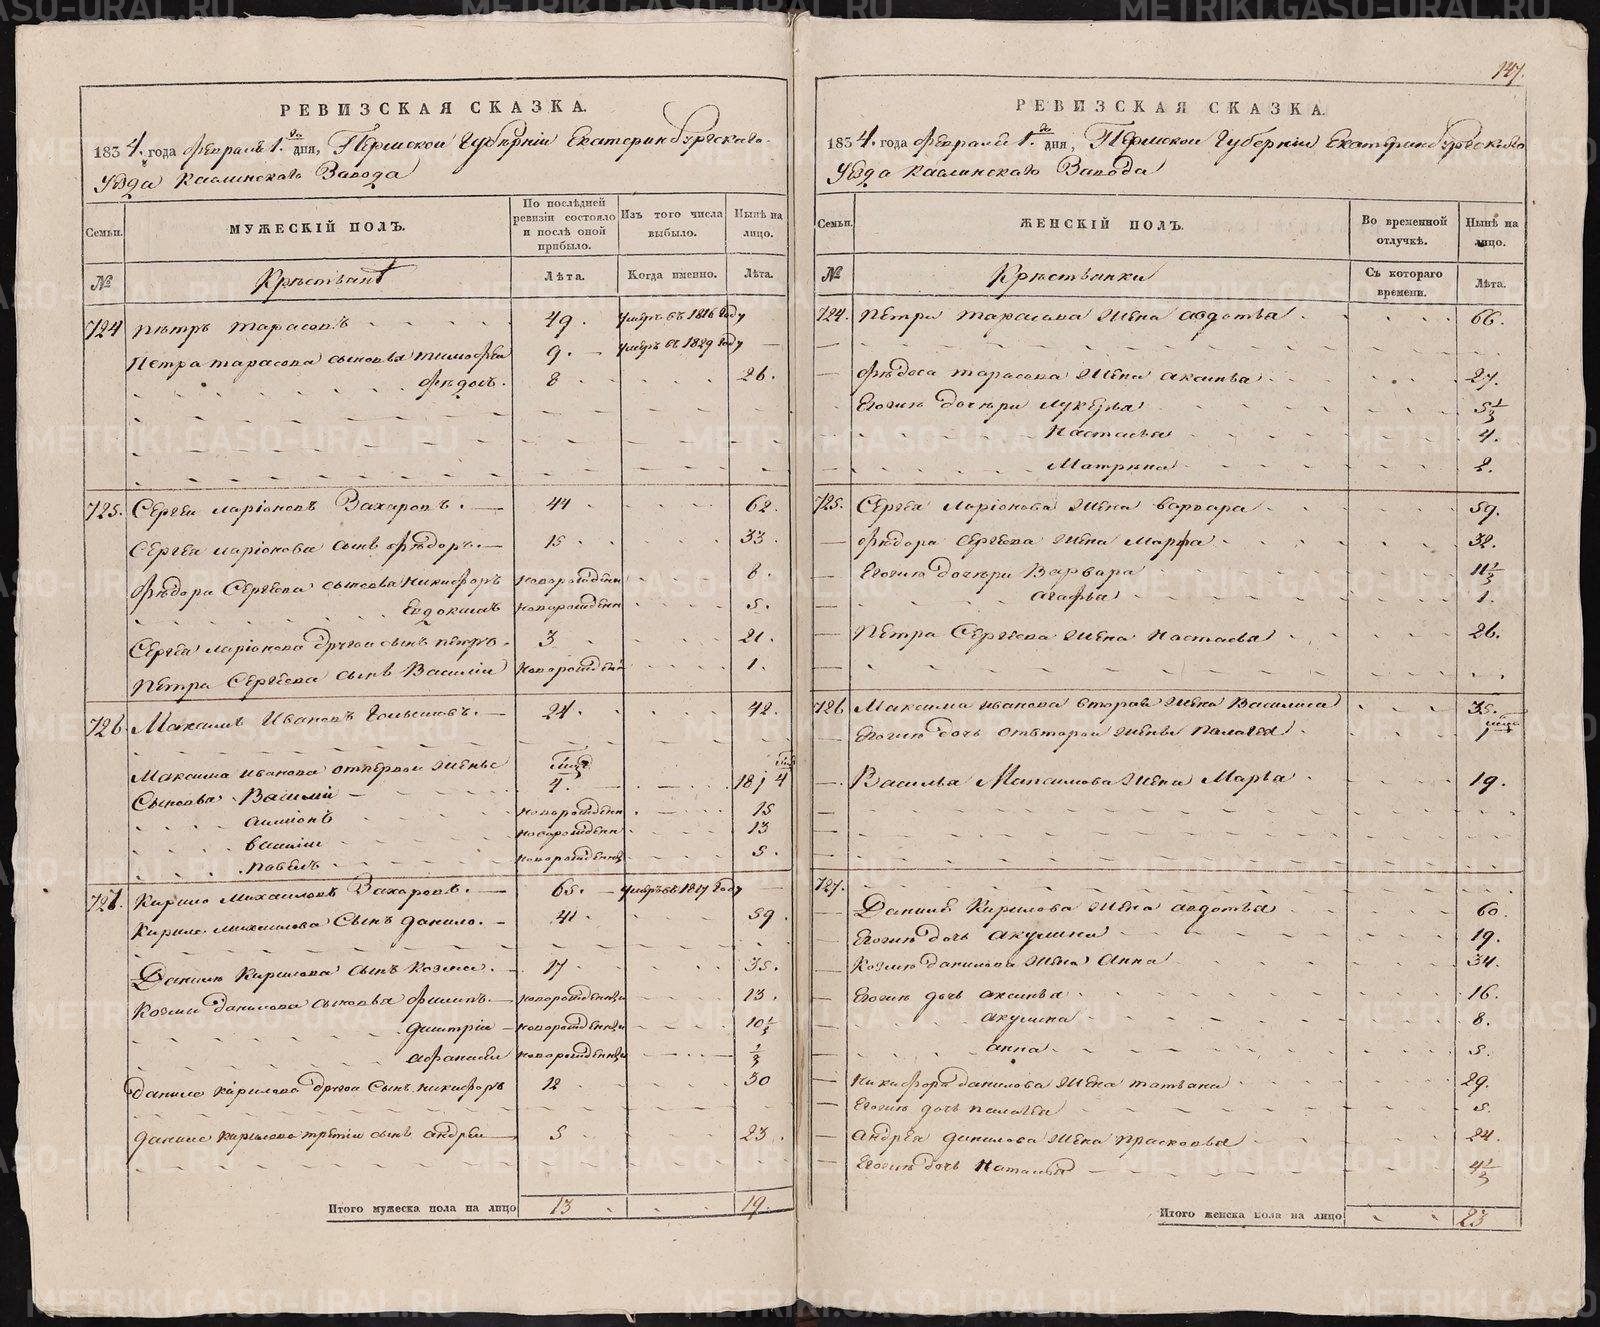 147.
РЕВИЗСКАЯ СКАЗКА.
1834. года февраля 1го дня, Пермской Губернiи Екатеринбургскаго
Уѣзда Каслинскаго Завода
Семьи. МУЖЕСКIЙ ПОЛЪ. По послѣдней ревизiи состояло и послѣ оной прибыло. Изъ того числа выбыло. Нынѣ на лицо.
№ Крестьянъ Лѣта. Когда именно. Лѣта.
724 Петръ Тарасовъ 49. умеръ въ 1816 году
Петра Тарасова сыновья Тимофей 9. умеръ въ 1829 году
Федосъ. 8 26.
725. Сергей Ларiоновъ Захаровъ. 44 62.
Сергея Ларiонова сынъ Федоръ. 15 33.
Федора Сергеева сыновья Никифоръ новорожденн 8.
Евдокимъ новорожденн 5.
Сергея Ларiонова другой сынъ Петръ. 3 21.
Петра Сергеева сынъ Василiй новорожден 1.
726. Максимъ Ивановъ 24. 42.
Максима Иванова отпервой жены
Сыновья Василiй 4. 18 4
новорожденн 15
новорожденн 13
Павелъ новорожденн 5.
727. Кирило Михаиловъ Захаровъ. 65. умеръ въ 1817 году
Кирила Михаилова Сынъ Данило. 41. 59.
Данила Кирилова сынъ Козма. 17 35.
Козмы Данилова сыновья Филипъ. новорожденн 13.
Дмитрiй новорожденн 10 1/2
Афанасей новорожденн 1/2
Данила Кирилова другой Сынъ Никифоръ 12 30
Данила Кирилова третiй сынъ Андрей 5 23.
Итого мужеска пола на лицо 13 19.
РЕВИЗСКАЯ СКАЗКА.
1834. года февраля 1го дня, Пермской Губернiи Екатеринбургскаго
Уѣзда Каслинскаго Завода
Семьи. ЖЕНСКIЙ ПОЛЪ. Во временной отлучкѣ. Нынѣ на лицо.
№ Крестьянки Съ котораго времени. Лѣта.
724. Петра Тарасова жена Авдотья 66.
жена Аксинья 27.
Егожъ дочери Лукерья 5 1/2
Настасья 4.
Матрена 2.
725. Сергея Ларiонова жена Варвара 59.
Федора Сергеева жена Марфа 32.
Егожъ дочери Варвара 11 1/2
Агафья 1.
Петра Сергеева жена Настасья 26.
726 Максима Иванова вторая жена Василиса 35.
Егожъ дочь отвторой жены Палагея 1
Василья Максимова жена Марья 19.
727.
Данила Кирилова жена Авдотья 60.
Егожъ дочь Акулина 19.
Козмы Данилова жена Анна 34.
Егожъ дочь Аксинья 16.
Акулина 8.
Анна 5.
Никифора Данилова жена Татьяна 29.
Егожъ дочь Палагея 5.
Андрея Данилова жена Прасковья 24.
Егожъ дочь Наталья 4 1/2
Итого женска пола на лицо 23
METRIKI.GASO-URAL.RU